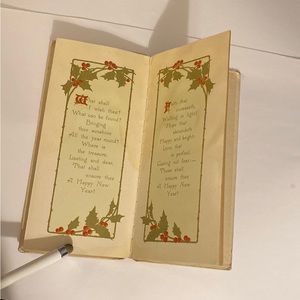 What shall
I wish thee?
What can be found?
Bringing
thee sunshine
All the year round?
Where is
the treasure,
Lasting and dear,
That shall
ensure thee
A Happy New
Year?
Faith that
increaseth,
Walking in light;
Hope that
aboundeth,
Happy and bright;
Love that
is perfect,
Casting out fear—
These shall
ensure thee
A Happy New
Year!